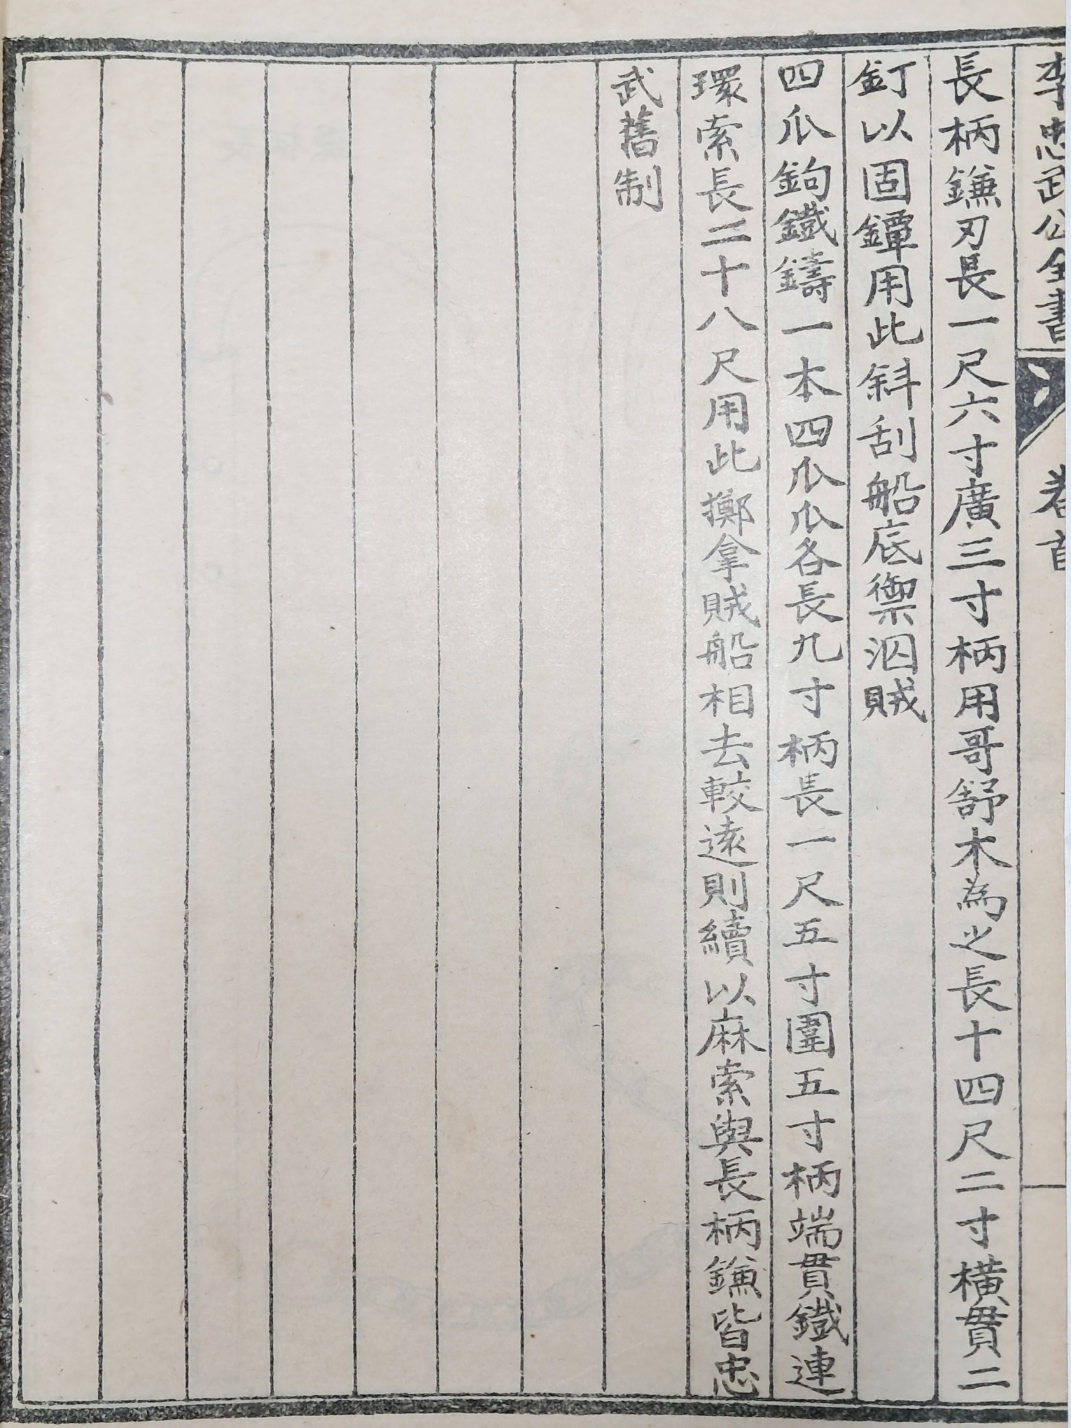 李忠武公全書 卷首
長柄鎌刃長一尺六寸廣三寸柄用哥舒木為之長十四尺二寸橫貫二
釘以固鐔用此斜刮船底禦泅賊
四爪鉤鐵鑄一本四爪爪各長九寸柄長一尺五寸圍五寸柄端貫鐵連
環索長二十八尺用此擲拿賊船相去較遠則續以麻索與長柄鎌皆忠
武舊制